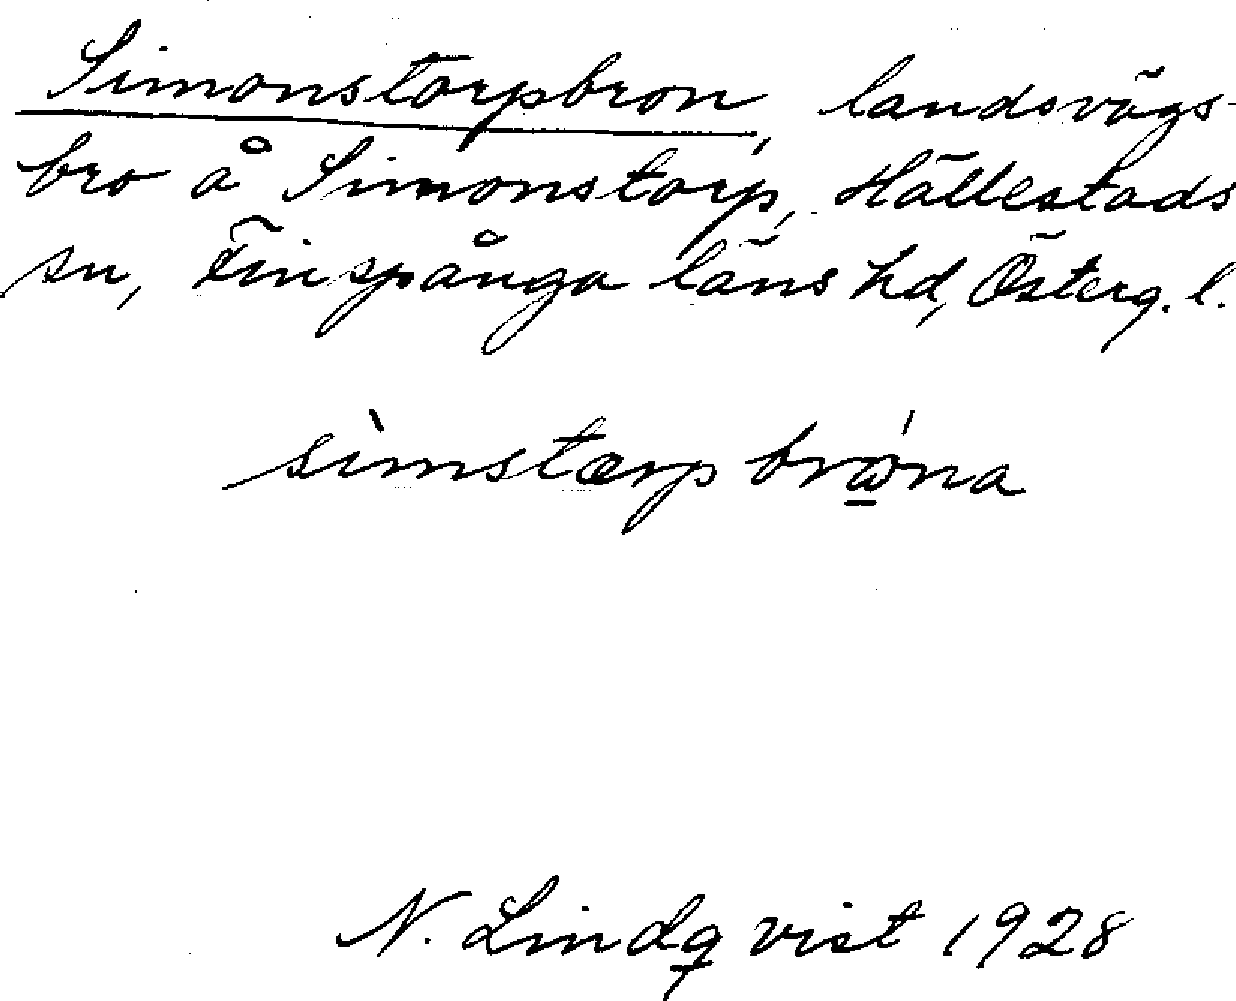 Simonstorpbron, landsvägs-
bro å Simonstorp, Hällestads
sn, Finspånga läns hd, Österg. l.
sìmstærp
N. Lindqvist 1928